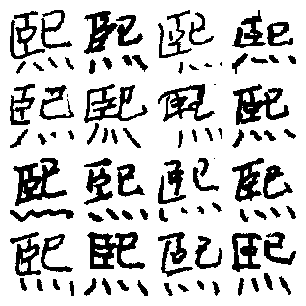 熙熙熙熙
熙熙熙熙
熙熙熙熙
熙熙熙熙